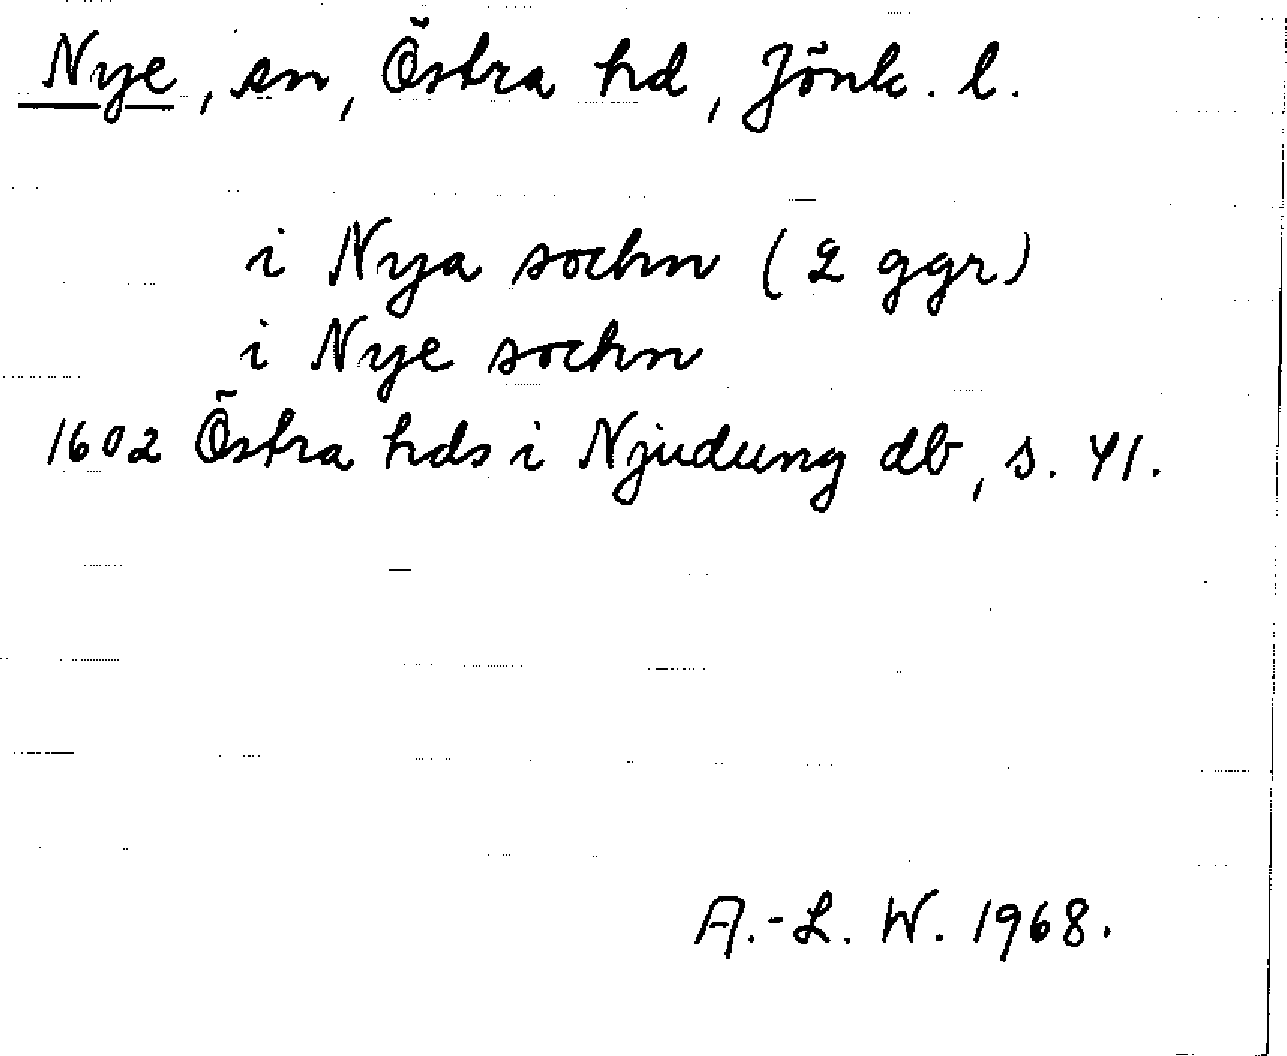 Nye, sn, Östra hd, Jönk. l.
i Nya sochn (2 ggr)
i Nye sochn
1602 Östra hds i Njudung db, s. 41.
A.-L. W. 1968.